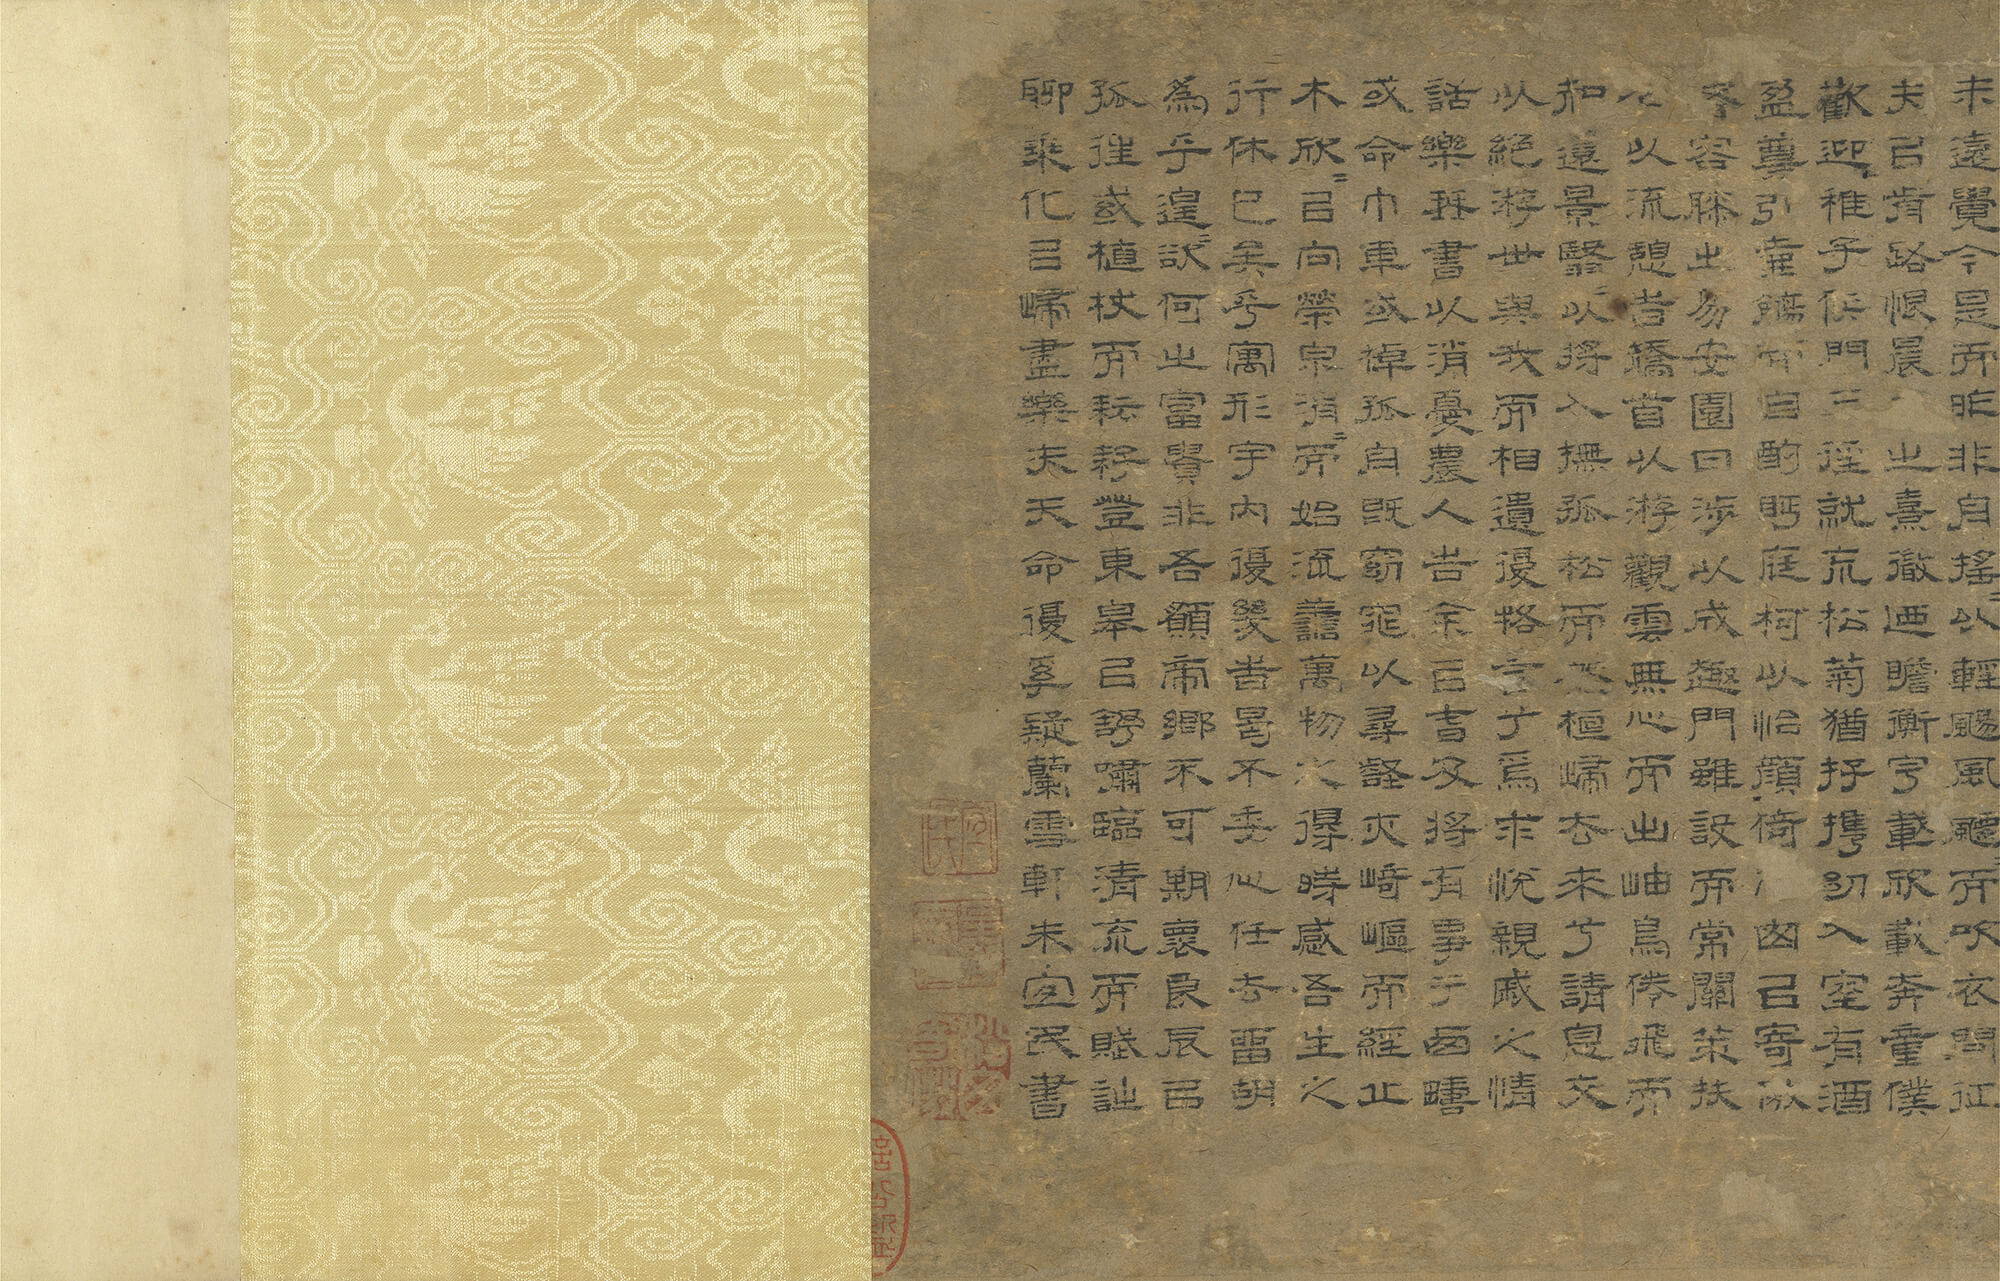 未遠覺今是而昨非自搖〻以輕颺風飄〻而吹衣問征
夫㠯前路恨晨之熹微迺瞻衡宇載欣載奔童僕
歡迎稚子候門三徑就荒松菊猶存攜幼入室有酒
盈尊引壺觴而自酌眄庭柯以怡顏倚囪㠯寄傲
容膝之易安園日涉以成趣門雖設而常關策扶
老以流憩時矯首以游觀雲無心而出岫鳥倦飛而
知還景翳〻以將入撫孤松而盤桓歸去來兮請息交
以絕游世與我而相遺復駕言兮焉求悅親戚之情
話樂琴書以消憂農人告余㠯春及將有事于西疇
或命巾車或棹孤舟既窈窕以尋壑亦崎嶇而經丘
木欣〻㠯向榮泉涓〻而始流善萬物之得時感吾生之
行休已矣乎寓形宇內復幾時曷不委心任去留胡
為乎遑〻欲何之富貴非吾願帝鄉不可期懷良辰㠯
孤往或植杖而耘耔登東皋㠯舒嘯臨清流而賦詩
聊乘化㠯歸盡樂夫天命復奚疑蘭雪軒朱宜民書